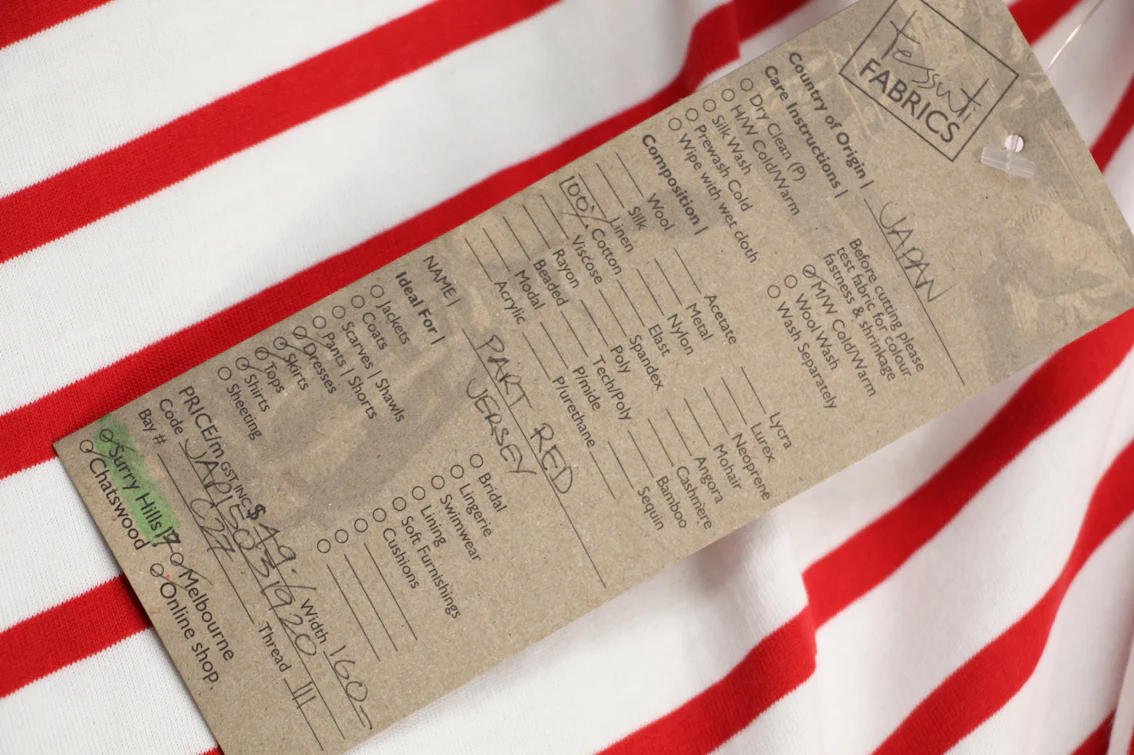 Tessuti
FABRICS
Country of Origin | JAPAN
Care Instructions |
Dry Clean (P)
H/W Cold/Warm
Silk Wash
Prewash Cold
Wipe with wet cloth
Before cutting please
test fabric for colour
fastness & shrinkage
M/W Cold/Warm
Wool Wash
Wash Separately
Composition |
Wool
Silk
Linen
100% Cotton
Viscose
Rayon
Beaded
Modal
Acrylic
Acetate
Metal
Nylon
Elast
Spandex
Poly
Tech/Poly
P/mide
P/urethane
Lycra
Lurex
Neoprene
Mohair
Angora
Cashmere
Bamboo
Sequin
NAME | PART RED
JERSEY
Ideal For |
Jackets
Coats
Scarves | Shawls
Pants | Shorts
Dresses
Skirts
Tops
Shirts
Sheeting
Bridal
Lingerie
Swimwear
Lining
Soft Furnishings
Cushions
PRICE/m GST INC $49.- Width 160-
Code Thread III
Bay # 027
Surry Hills 17 Melbourne
Chatswood Online shop.